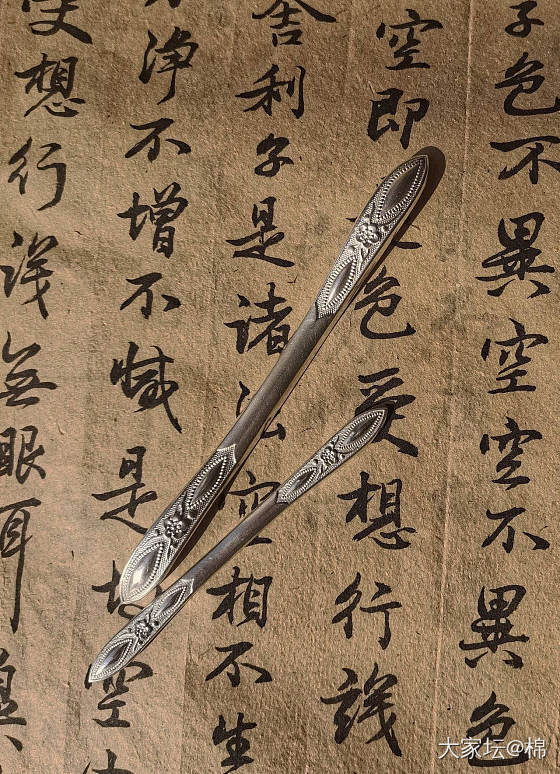 子色不異空空不異色
空即色受想行識
舍利子是諸法空相不生
淨不增不減是故空
受想行識無眼耳鼻
大家坛@棉